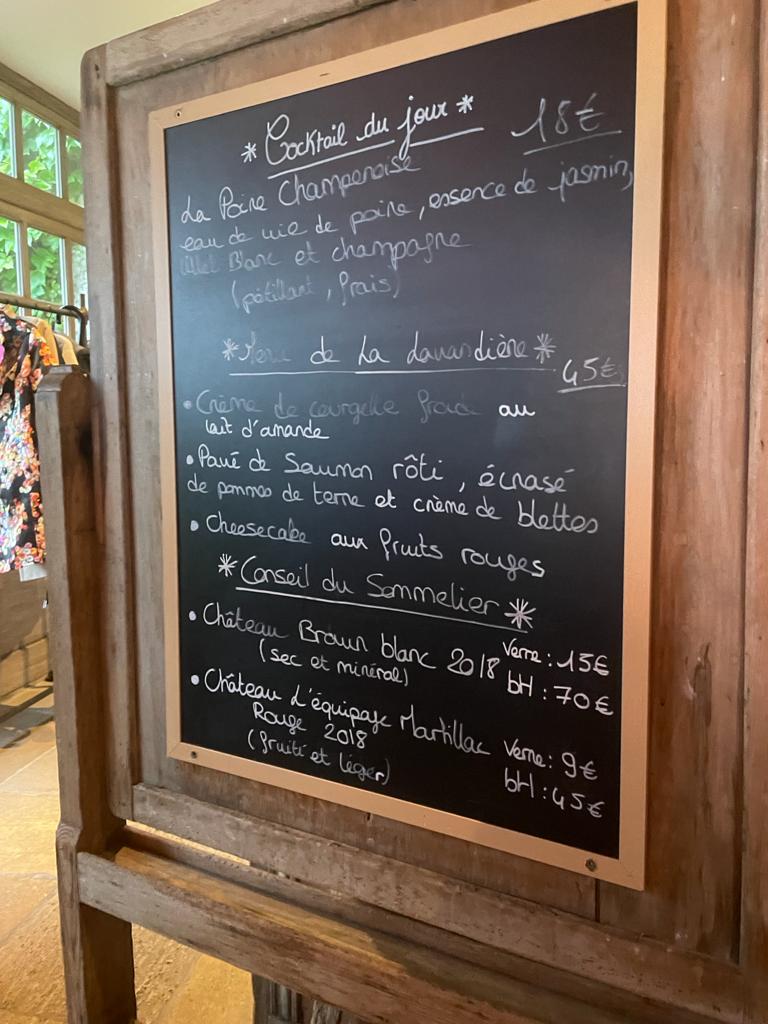 * Cocktail du jour * 18€
La Poire Champenoise
eau de vie de poire, essence de jasmin,
Lillet Blanc et champagne
(pétillant, frais)
*Menu de La Lavandière* 45€
• Crème de courgette froide au
lait d'amande
• Pavé de Saumon rôti, écrasé
de pommes de terre et crème de blettes
• Cheesecake aux fruits rouges
* Conseil du Sommelier *
• Château Brown blanc 2018 Verre : 15€
(sec et minéral) btl : 70€
• Château d'équipage Martillac Verre : 9€
Rouge 2018 btl : 45€
(fruité et léger)